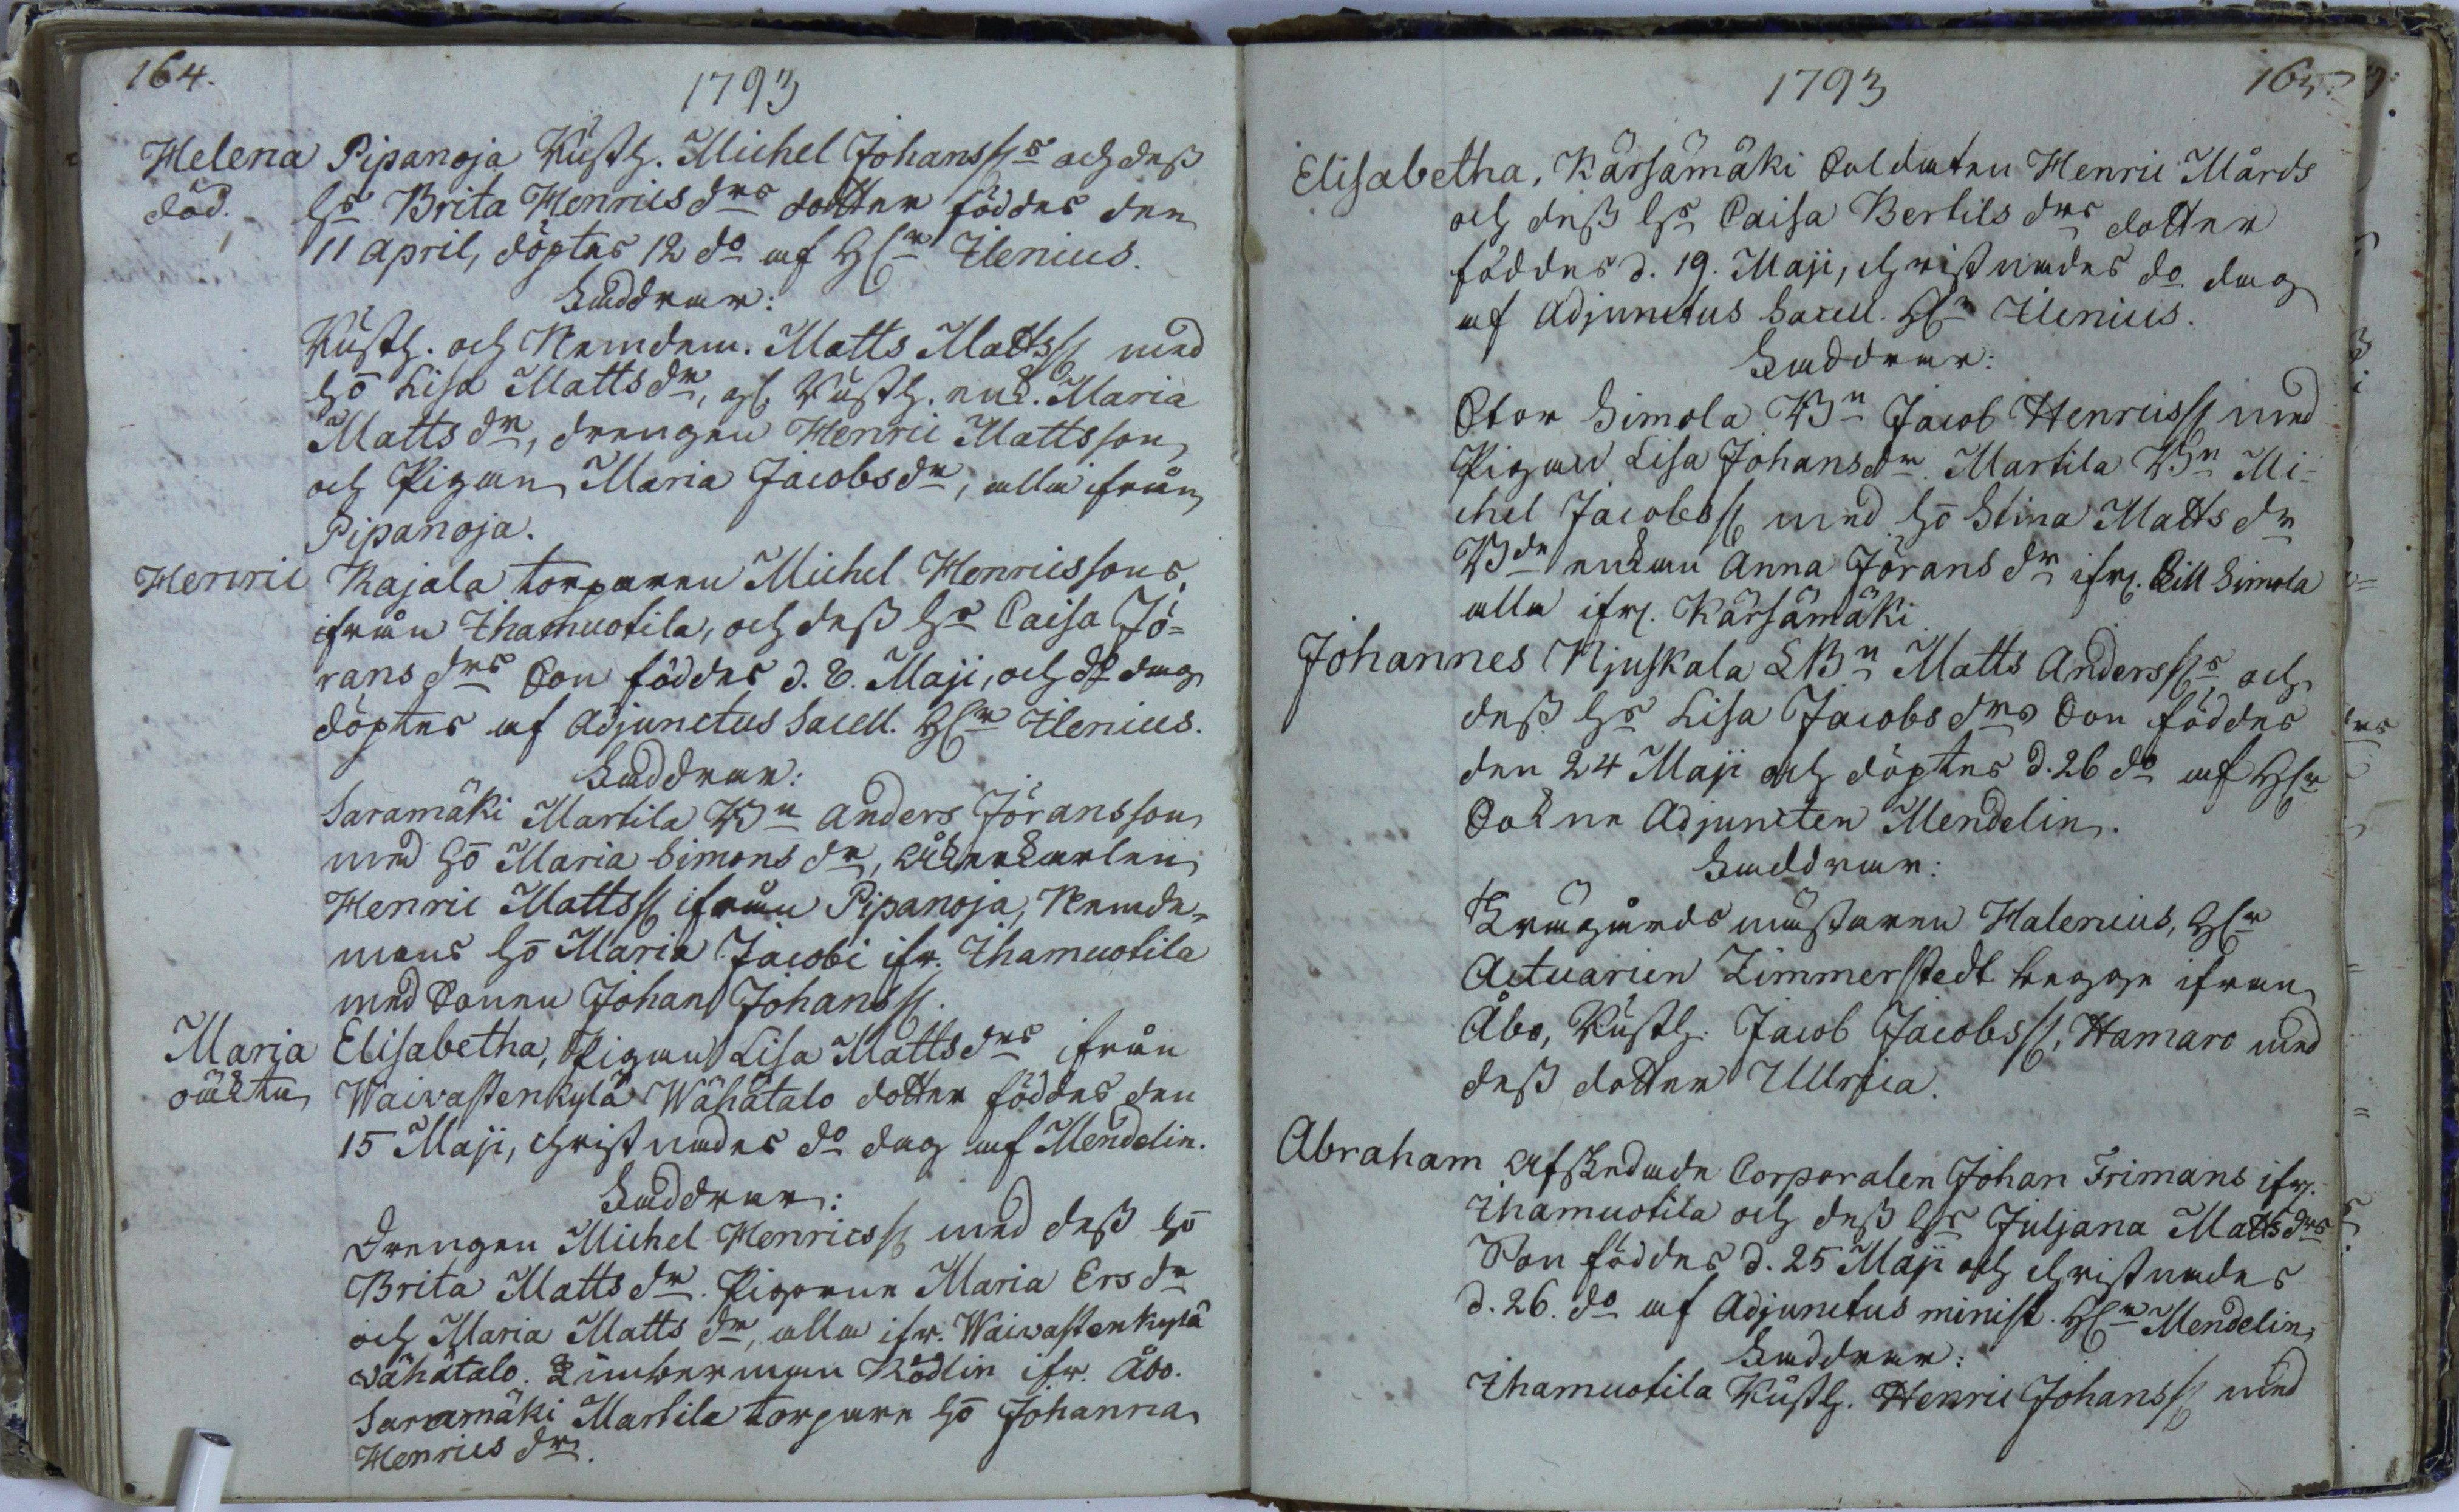 164.
1793
Helena Pipanoja Rusth. Michel Johanss:s och dess
död. hs Brita Henricsdrs dotter föddes den
11 April, döptes 12 do af Hr Ilenius.
Faddrar:
Rusth. och Nemdem. Matts Matts: med
ho Lisa Mattsdr, gl. Rusth. enk. Maria
Mattsdr, drengen Henric Mattsson
och Pigan Maria Jacobsdr, alla ifrån
Pipanoja.
Henric Kajala torparen Michel Henricssons,
ifrån Ihamuotila, och dess hs Caisa Jö-
ransdrs Son föddes d. 8. Maji, och do dag
döptes af Adjunctus Sacell. Hr Ilenius.
Faddrar:
Saramäki Martila Bn Anders Jöransson
med ho Maria Simonsdr, åkerkarlen
Henric Matts: ifrån Pipanoja, Nemde-
mans ho Maria Jacobi ifr. Ihamuotila
med Sonen Johan Johans:.
Maria Elisabetha, Pigan Lisa Mattsdrs ifrån
oäkta Waivastenkylä Wähätalo dotter föddes den
15 Maji, christnades do dag af Mendelin.
Faddrar:
Drengen Michel Henrics: med dess ho
Brita Mattsdr. Pigorne Maria Ersdr
och Maria Mattsdr, alla ifr. Waivastenkylä
wähätalo. Timberman Rödlin ifr. Åbo.
Saramäki Martila torpare ho Johanna
Henricsdr.
1793
165.
Elisabetha, Kärsämäki Soldaten Henric Mårds
och dess hs Caisa Bertilsdrs dotter
föddes d. 19. Maji, christnades do dag
af Adjunctus Sacell. Hr Ilenius.
Faddrar:
Stor Simola Bn Jacob Henrics: med
Pigan Lisa Johansdr. Martila Bn Mi-
chel Jacobs: med ho Stina Mattsdr
Bde enkan Anna Jöransdr ifr. Lill Simola
alla ifr. Kärsämäki
Johannes Njuskala LBn Matts Anders:s och
dess hs Lisa Jacobsdrs Son föddes
den 24 Maji och döptes d. 26 do af Hr
Sokne Adjuncten Mendelin.
Faddrar:
Trägårdsmästaren Halenius, Hr
Actuarien Zimmerstedt begge ifrån
Åbo, Rusth. Jacob Jacobs:, Hamaro med
dess dotter Ullrica.
Abraham Afskedade Corporalen Johan Frimans ifr.
Ihamuotila och dess hs Juljana Mattsdrs
Son föddes d. 25 Maji och christnades
d. 26. do af Adjunctus minist. Hr Mendelin,
Faddrar:
Ihamuotila Rusth. Henric Johans: med